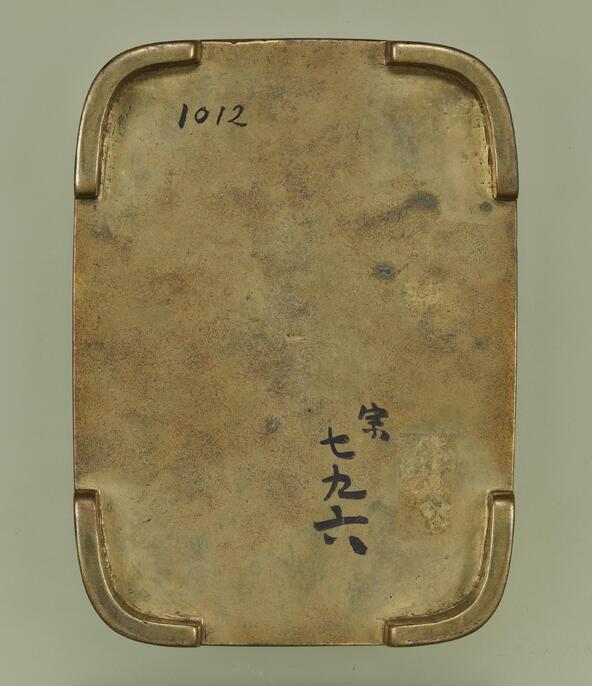 1012
宗
七九六